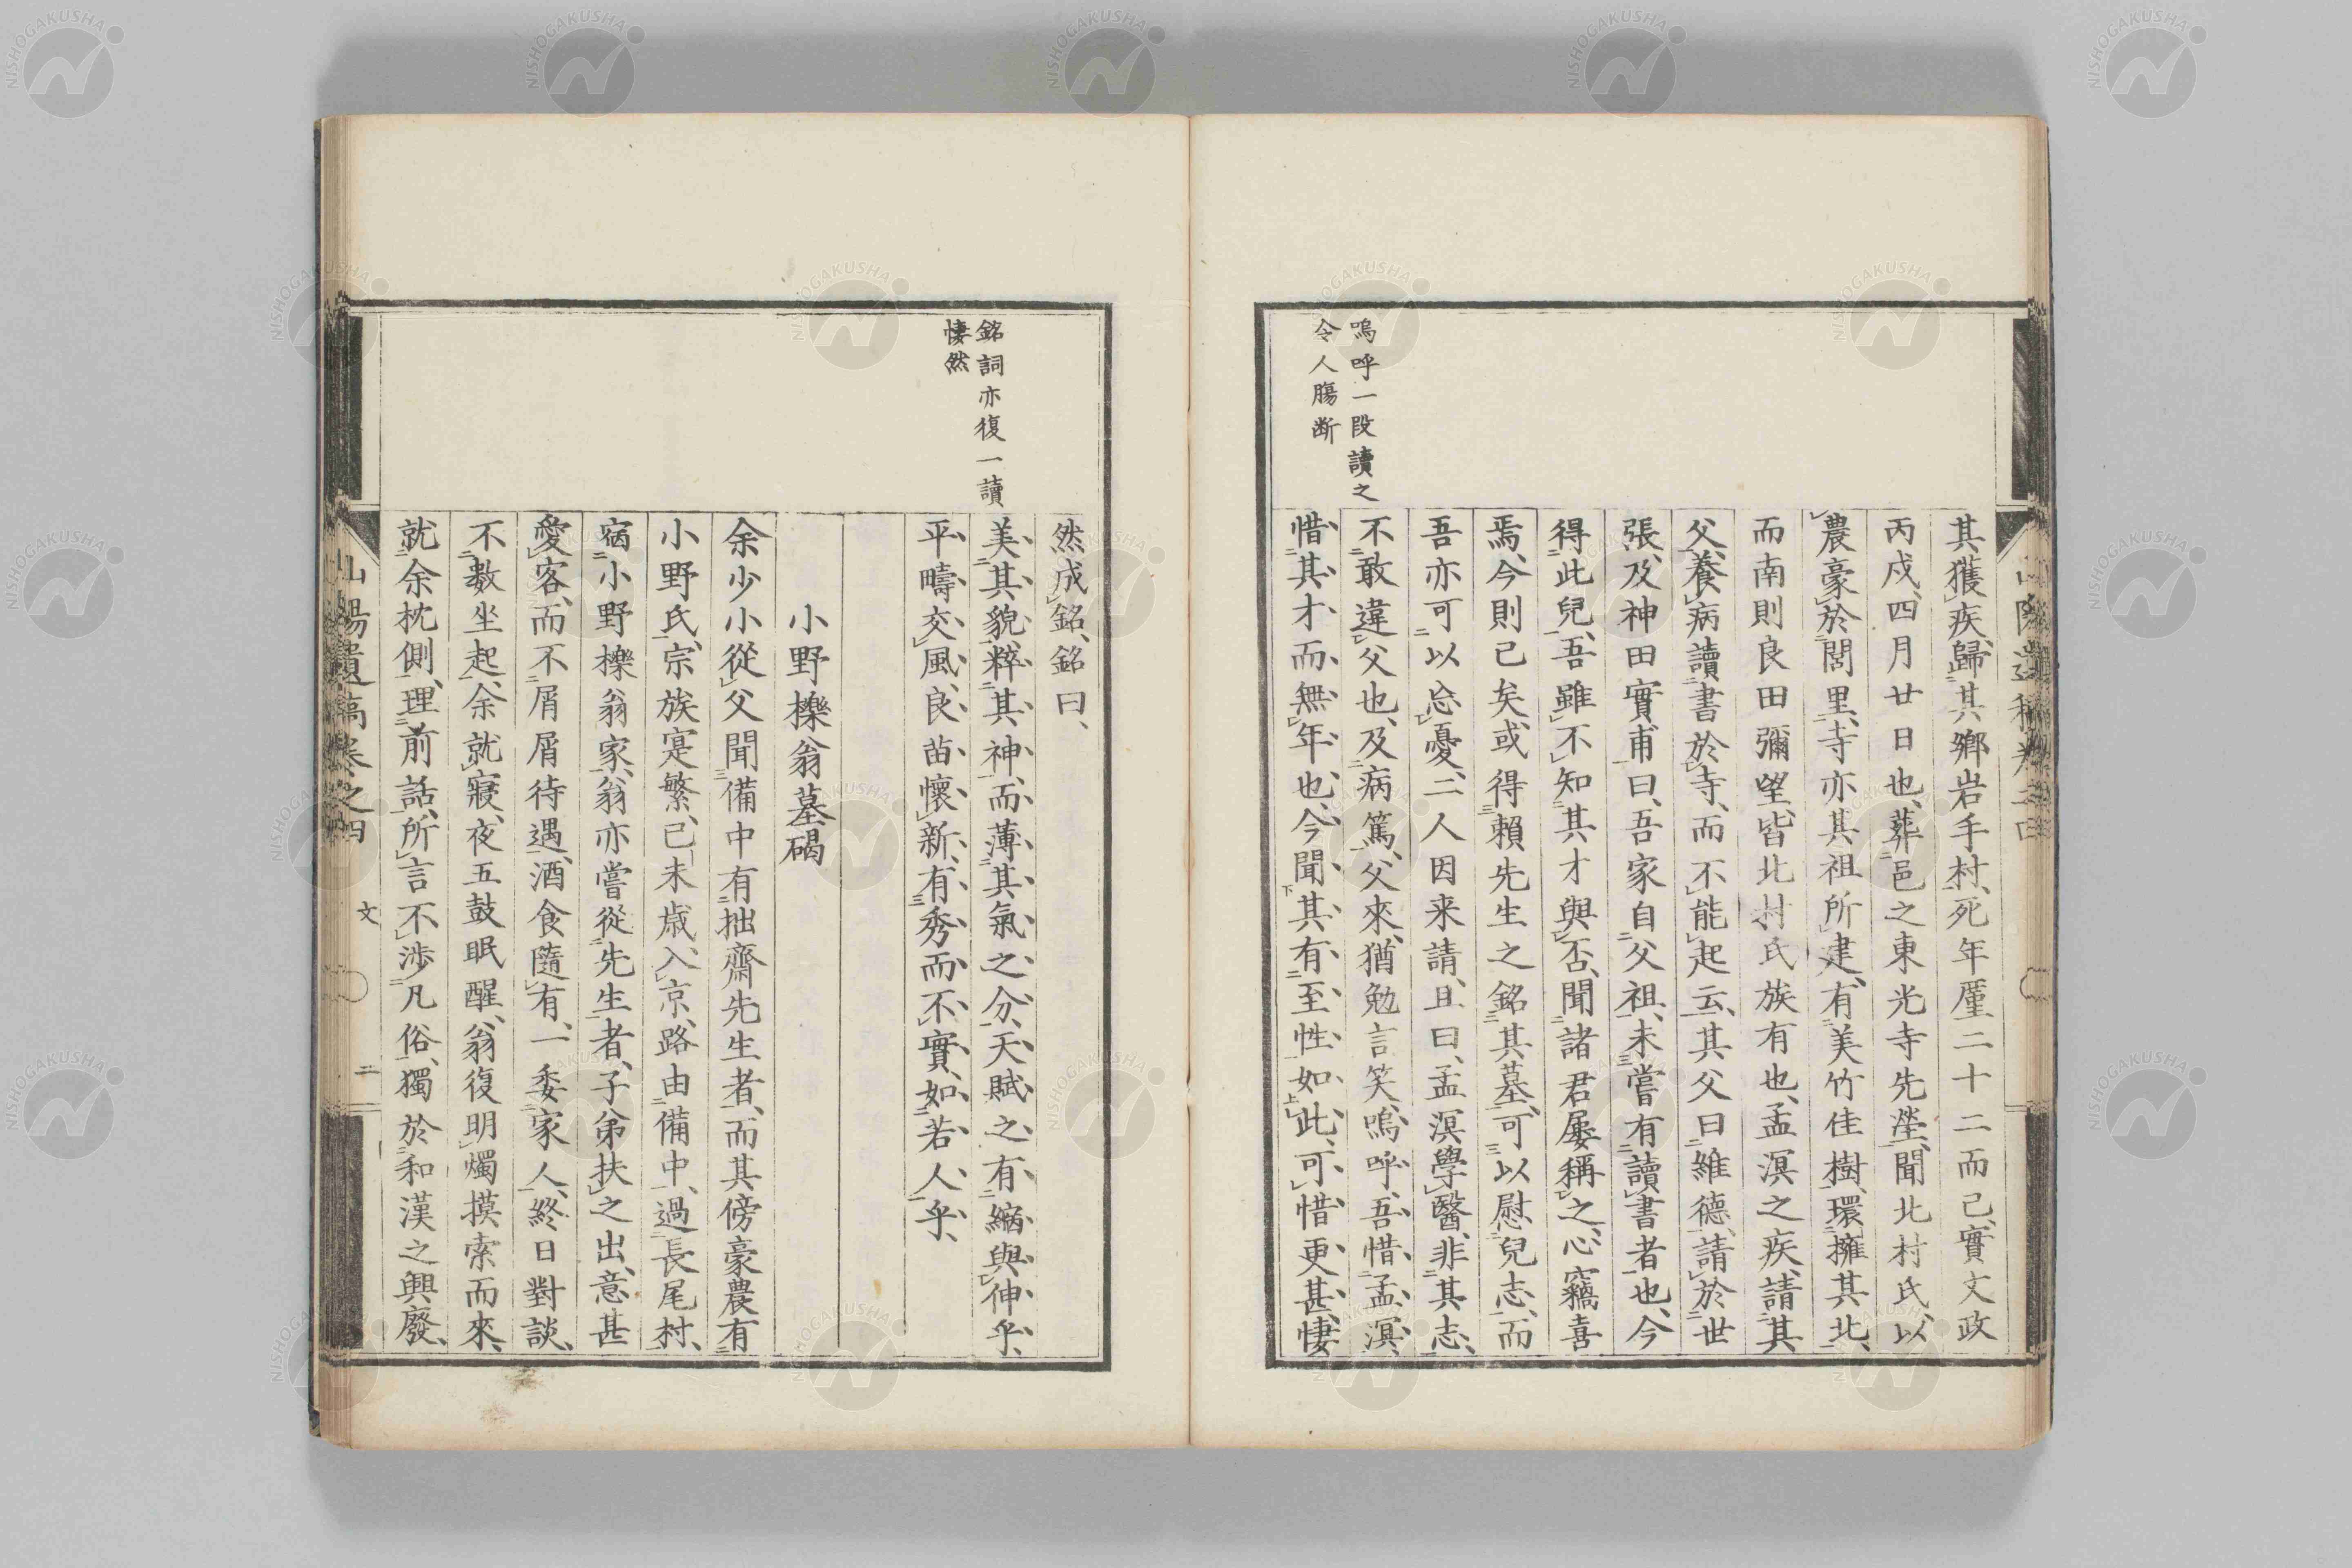 嗚呼一段讀之
令人膓断
其獲疾、歸其鄉岩手村、死年厪二十二而已、實文政
丙戌、四月廿日也、葬邑之東光寺先塋、聞北村氏、以
農豪於閭里、寺亦其祖所建、有美竹佳樹、環擁其北、
而南則良田彌望、皆北村氏族有也、孟溟之疾、請其
父、養病讀書於寺、而不能起云、其父曰維德、請於世
張、及神田實甫曰、吾家自父祖、未嘗有讀書者也、今
得此兒、吾雖不知其才與否、聞諸君屢稱之、心竊喜
焉、今則已矣、或得賴先生之銘其墓、可以慰兒志、而
吾亦可以忘憂、二人因来請、且曰、孟溟學醫、非其志、
不敢違父也、及病篤、父來、猶勉言笑、嗚呼、吾惜孟溟、
惜其才而無年也、今聞其有至性如此、可惜更甚、悽
銘詞亦復一讀
悽然
然成銘、銘曰、
美其貌、粹其神、而薄其氣之分、天賦之有縮與伸乎、
平疇交風、良苗懷新、有秀而不實、如若人乎、
小野櫟翁墓碣
余少小從父聞備中有拙齋先生者、而其傍豪農有
小野氏、宗族寔繁、己未歲、入京、路由備中、過長尾村、
宿小野櫟翁家、翁亦嘗從先生者、子弟扶之出、意甚
愛客、而不屑屑待遇、酒食隨有、一委家人、終日對談、
不數坐起、余就寢、夜五鼓眠醒、翁復明燭摸索而來、
就余枕側、理前話、所言不涉凡俗、獨於和漢之興廢、
山陽遺稿卷之四 文 二